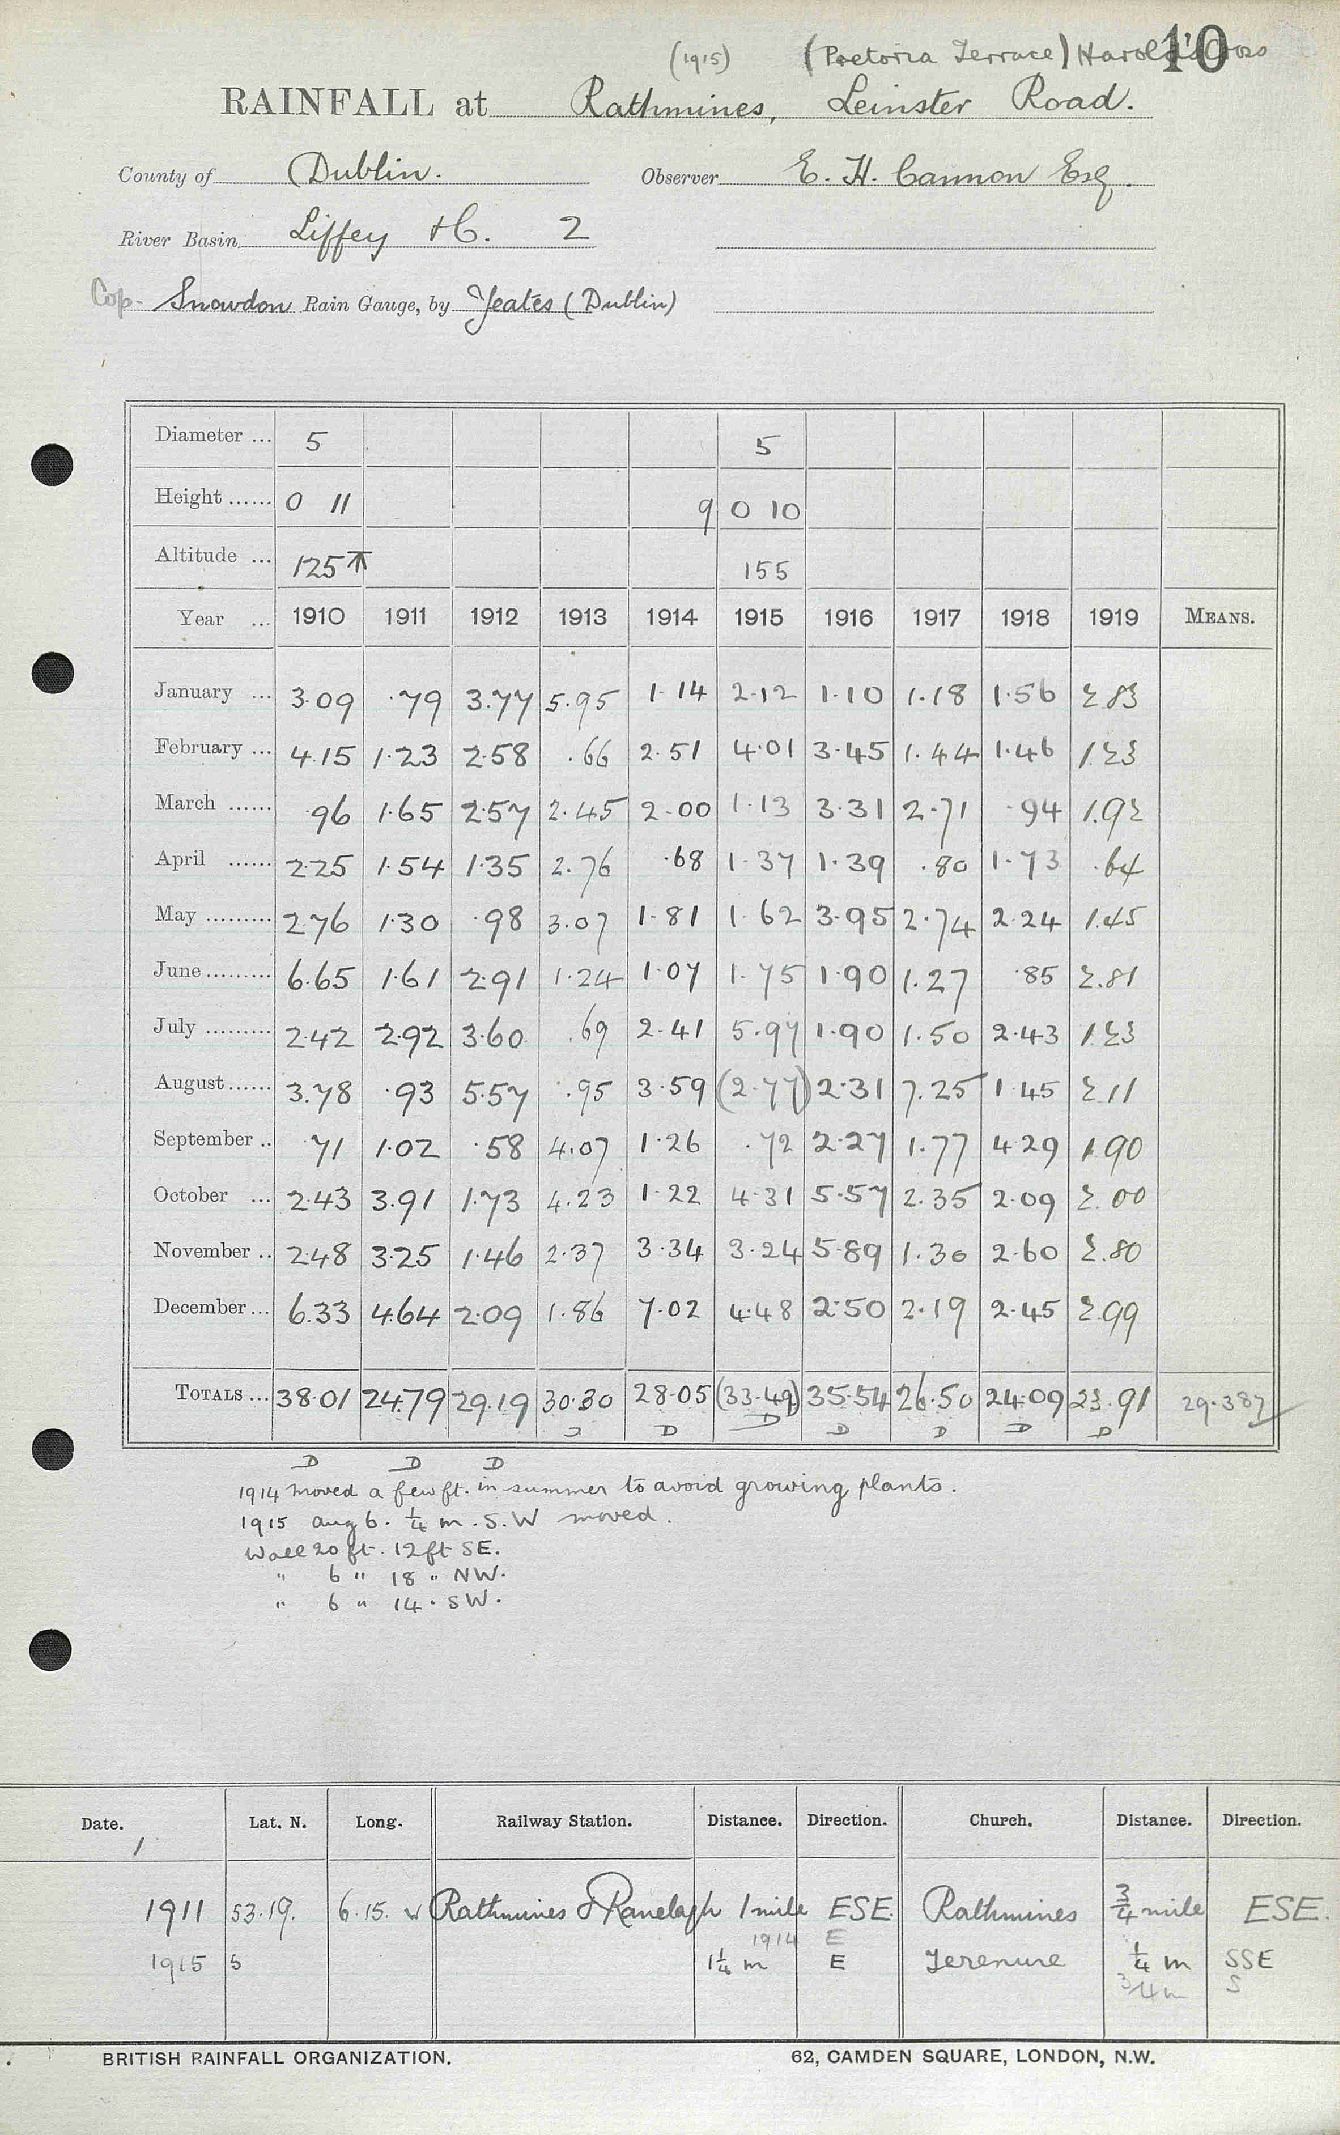 10
(1915) (Pretoria Terrace) Harold's Cross
RAINFALL at Rathmines, Leinster Road.
County of Dublin. Observer E. H. Cannon Esq.
River Basin Liffey &C. 2
Cop- Snowdon Rain Gauge, by Yeates (Dublin)
Diameter ... 5 5
Height ...... 0 11 9 0 10
Altitude ... 125 155
Year ... 1910 1911 1912 1913 1914 1915 1916 1917 1918 1919 MEANS.
January ... 3.09 .79 3.77 5.95 1.14 2.12 1.10 1.18 1.56 2.83
February ... 4.15 1.23 2.58 .66 2.51 4.01 3.45 1.44 1.46 1.23
March ...... .96 1.65 2.57 2.45 2.00 1.13 3.31 2.71 .94 1.92
April ...... 2.25 1.54 1.35 2.76 .68 1.37 1.39 .80 1.73 .64
May ......... 2.76 1.30 .98 3.07 1.81 1.62 3.95 2.74 2.24 1.45
June ......... 6.65 1.61 2.91 1.24 1.07 1.75 1.90 1.27 .85 2.81
July ......... 2.42 2.92 3.60 .69 2.41 5.97 1.90 1.50 2.43 1.23
August ...... 3.78 .93 5.57 .95 3.59 (2.77) 2.31 7.25 1.45 2.11
September .. .71 1.02 .58 4.07 1.26 .72 2.27 1.77 4.29 1.90
October ... 2.43 3.91 1.73 4.23 1.22 4.31 5.57 2.35 2.09 2.00
November .. 2.48 3.25 1.46 2.37 3.34 3.24 5.89 1.30 2.60 2.80
December ... 6.33 4.64 2.09 1.86 7.02 4.48 2.50 2.19 2.45 2.99
TOTALS ... 38.01 24.79 29.19 30.30 28.05 (33.49) 35.54 26.50 24.09 23.91 29.387
D D D D D D D
D D D
1914 moved a few ft. in summer to avoid growing plants.
1915 Aug 6. 1/4 m. S.W moved.
Wall 20 ft. 12ft SE.
" 6 " 18 " NW.
" 6 " 14 . SW.
Date. Lat. N. Long. Railway Station. Distance. Direction. Church. Distance. Direction.
1911 53.19. 6.15. W Rathmines & Ranelagh 1 mile ESE. Rathmines 3/4 mile ESE.
1914 E
1915 5 1 1/4 m E Terenure 1/4 m SSE
3/4 m S
BRITISH RAINFALL ORGANIZATION. 62, CAMDEN SQUARE, LONDON, N.W.